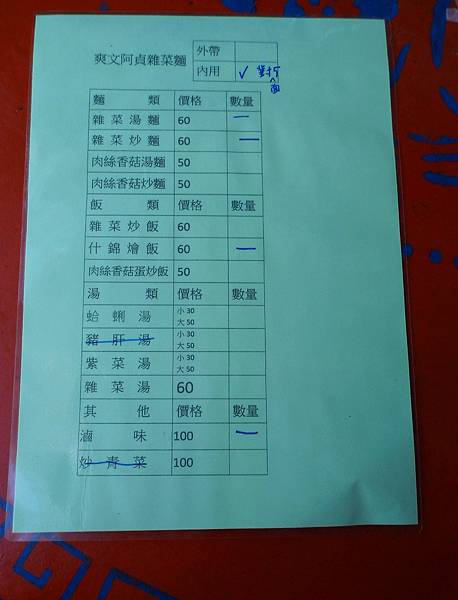 爽文阿貞雜菜麵 外帶
內用 ✓
麵類 價格 數量
雜菜湯麵 60 一
雜菜炒麵 60 一
肉絲香菇湯麵 50
肉絲香菇炒麵 50
飯類 價格 數量
雜菜炒飯 60
什錦燴飯 60 一
肉絲香菇蛋炒飯 50
湯類 價格 數量
蛤蜊湯 小30
大50
豬肝湯 小30
大50
紫菜湯 小30
大50
雜菜湯 60
其他 價格 數量
滷味 100 一
炒青菜 100